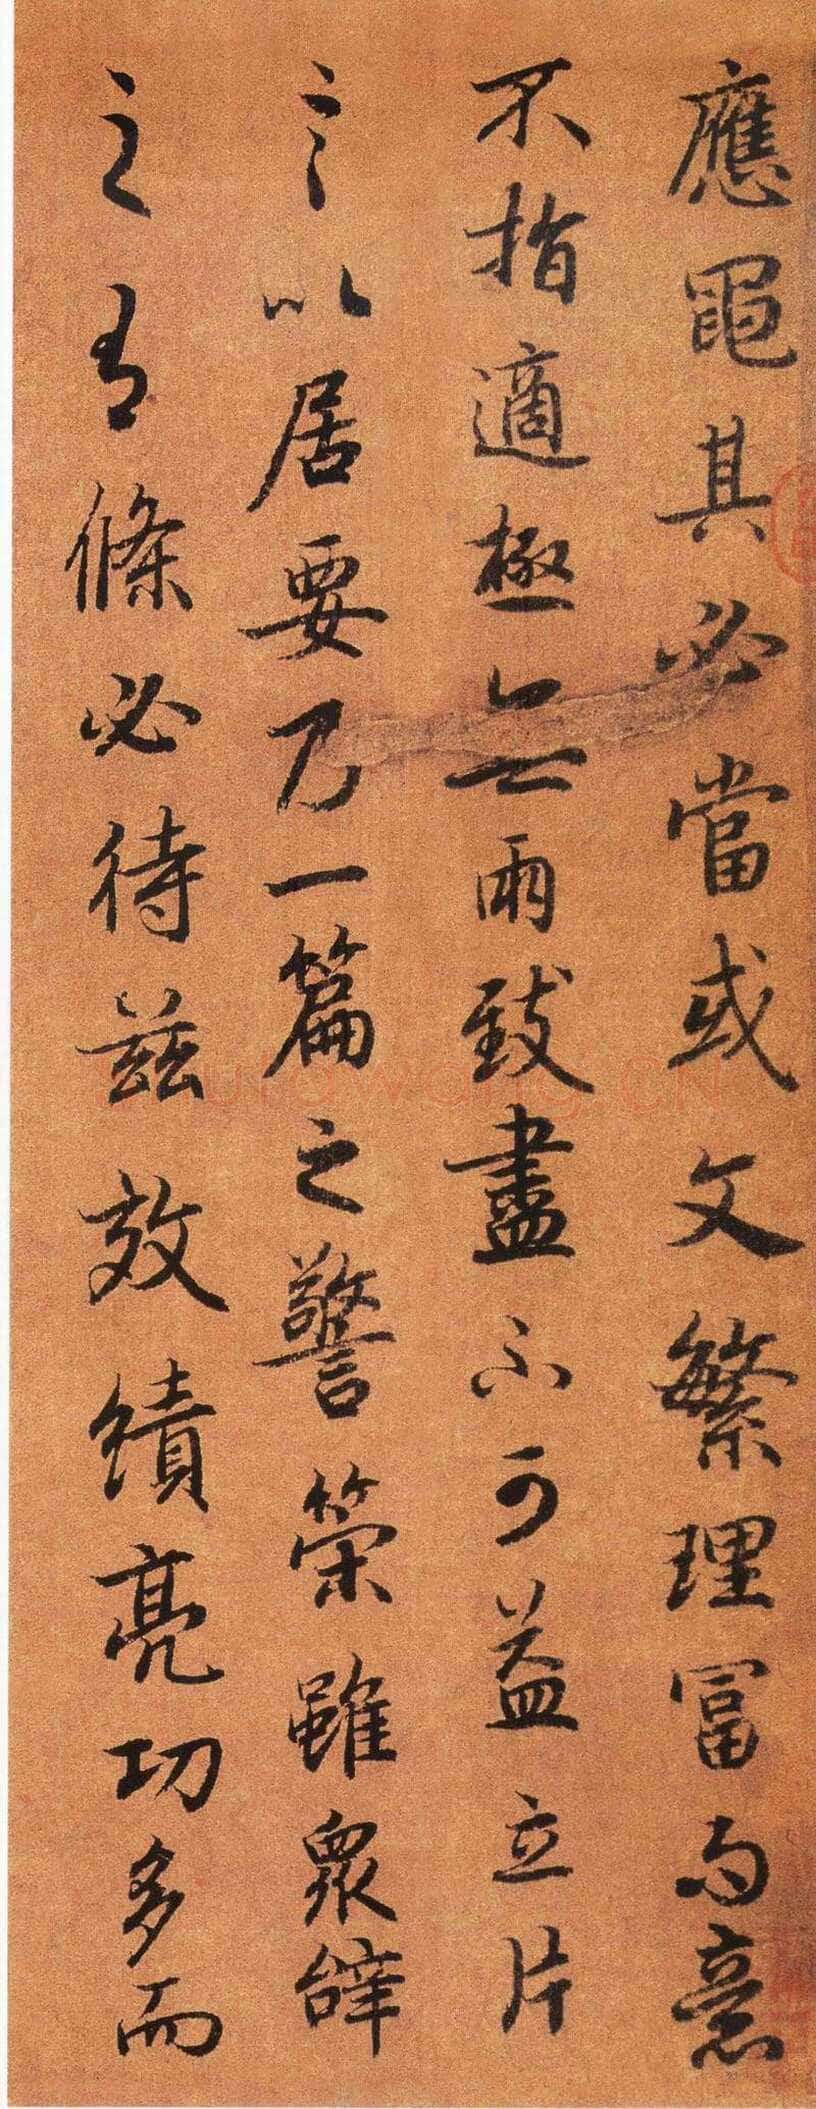 應黽其必當或文繁理富而意
不指適極無兩致盡不可益立片
言以居要乃一篇之警策雖眾辭
之有條必待茲效績亮功多而
shufawang.CN